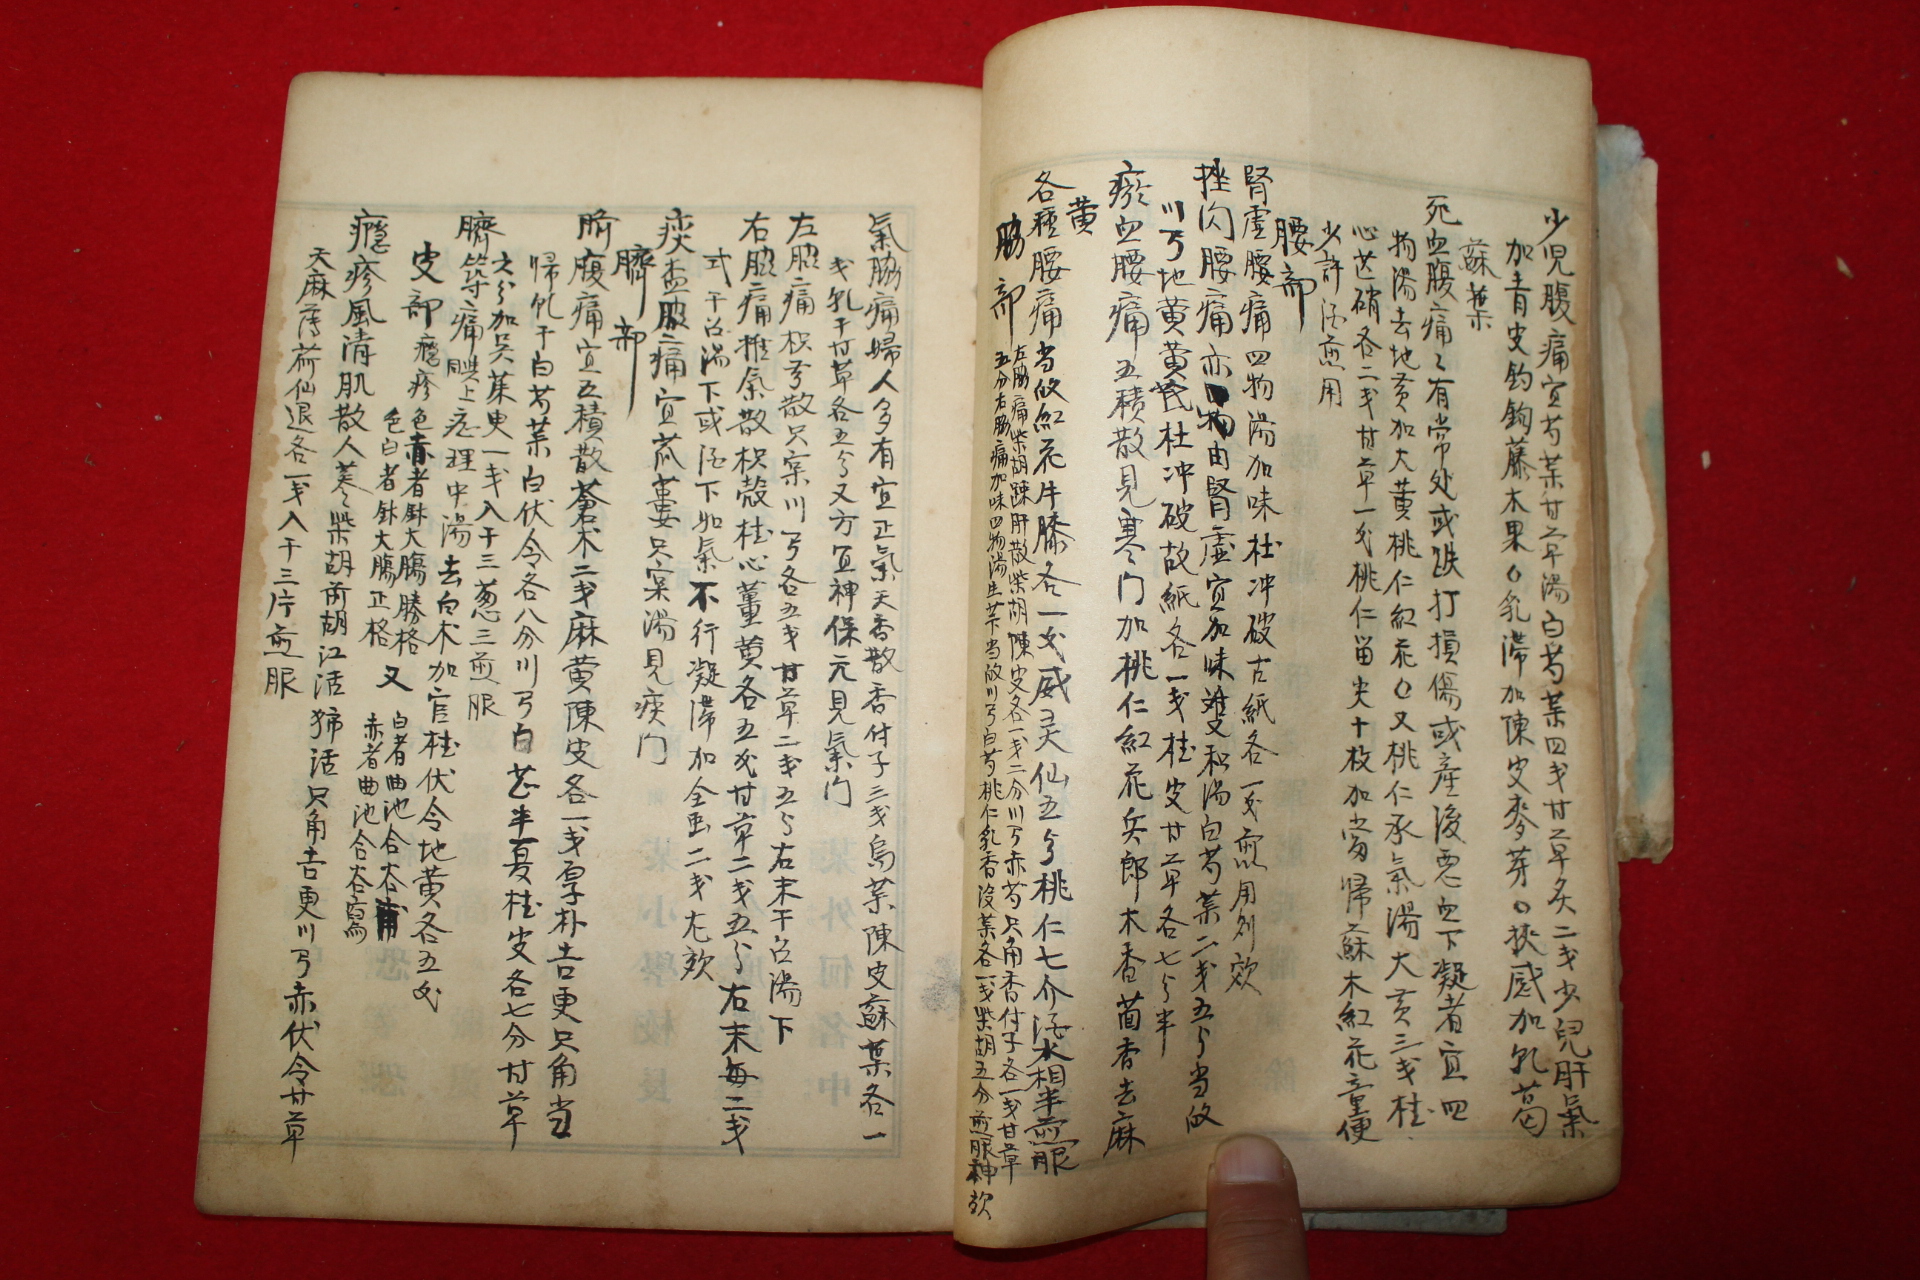 少児腹痛宜芍薬甘草湯白芍薬四戔甘草炙二戔少兒肝氣
加青皮釣鉤藤木果○乳滞加陳皮麥芽○挾感加乳葛
蘇葉
死血腹痛〻有常处或跌打損傷或產後惡血下凝者宜四
物湯去地黄加大黄桃仁紅花○又桃仁承氣湯大黄三戔桂
心芒硝各二戔甘草一戔桃仁留尖十枚加當帰蘇木紅花童便
少許酒煎用
腰部
腎虛腰痛四物湯加味杜冲破古紙各一戔煎用列效
挫閃腰痛亦由腎虛宜加味雙和湯白芍薬二戔五分当
川弓地黄黄芪杜冲破故紙各一戔桂皮甘草各七分半
瘀血腰痛五積散見寒门加桃仁紅花兵郎木香茴香去麻
黄
各種腰痛当紅花牛膝各一戔威灵仙五分桃仁七介酒水相半煎服
脇部
左脇痛柴胡踈肝散柴胡陳皮各一戔二分川弓赤芍只角香付子各一戔甘草
五分右脇痛加味四物湯生芐当川弓白芍桃仁乳香没薬各一戔柴胡五分煎服神效
氣脇痛婦人多有宜正氣天香散香付子三戔烏薬陳皮蘇葉各一
戔乳干甘草各五分又方宜神保元見氣门
左脇痛枳芎散只宲川弓各五戔甘草二戔五分右末干召湯下
右脇痛推氣散枳殼桂心薑黄各五戔甘草二戔五分右末每二戔
式干召湯下或酒下如氣不行凝滯加全虫二戔尢效
痰盃脇痛宜苽蔞只宲湯見痰门
臍部
臍腹痛宜五積散蒼术二戔麻黄陳皮各一戔厚朴吉更只角当
帰乳干白芍薬白伏令各八分川弓白芷半夏桂皮各七分甘草
六分加吴茱萸一戔入干三葱三煎服
臍築痛臍上疙理中湯去白术加官桂伏令地黄各五戔
皮部
癮疹色赤者鉢大膓勝格
色白者鉢大膓正格
又
白者曲池合谷補
赤者曲池合谷瀉
癮疹風清肌散人蔘柴胡前胡江活独活只角吉更川弓赤伏令甘草
天麻薄荷仙退各一戔入干三片煎服